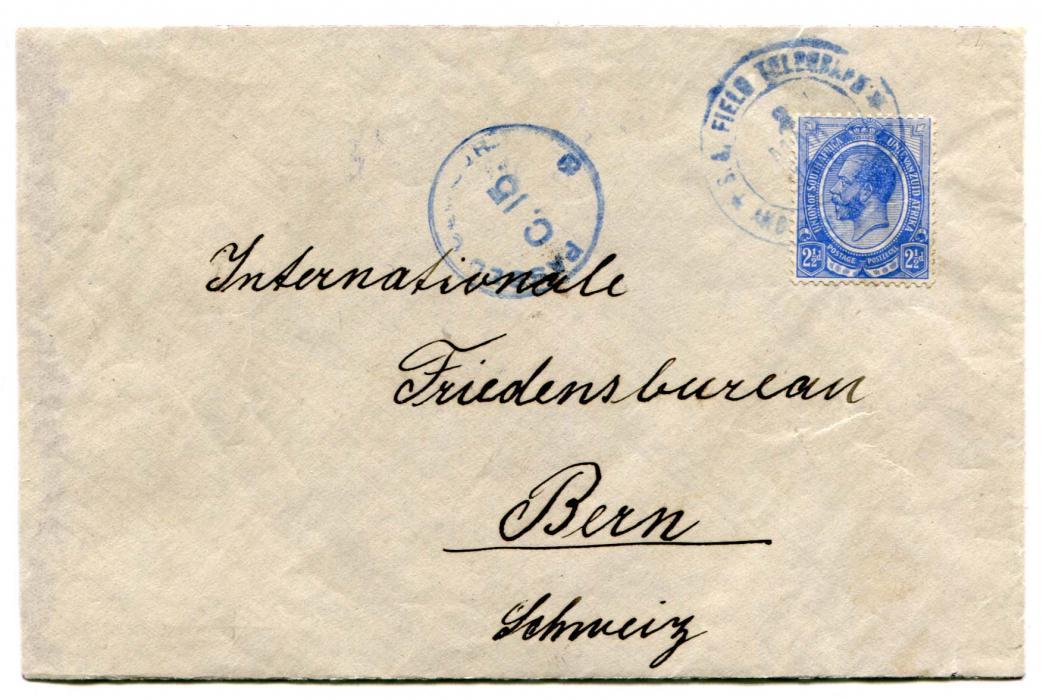 S.A. FIELD TELEGRAPH
PASSED CENSOR
C. 15.
UNION OF SOUTH AFRICA UNIE VAN ZUID AFRIKA
POSTAGE POSTZEGEL
2½d 2½d
Internationale
Friedensbureau
Bern
Schweiz